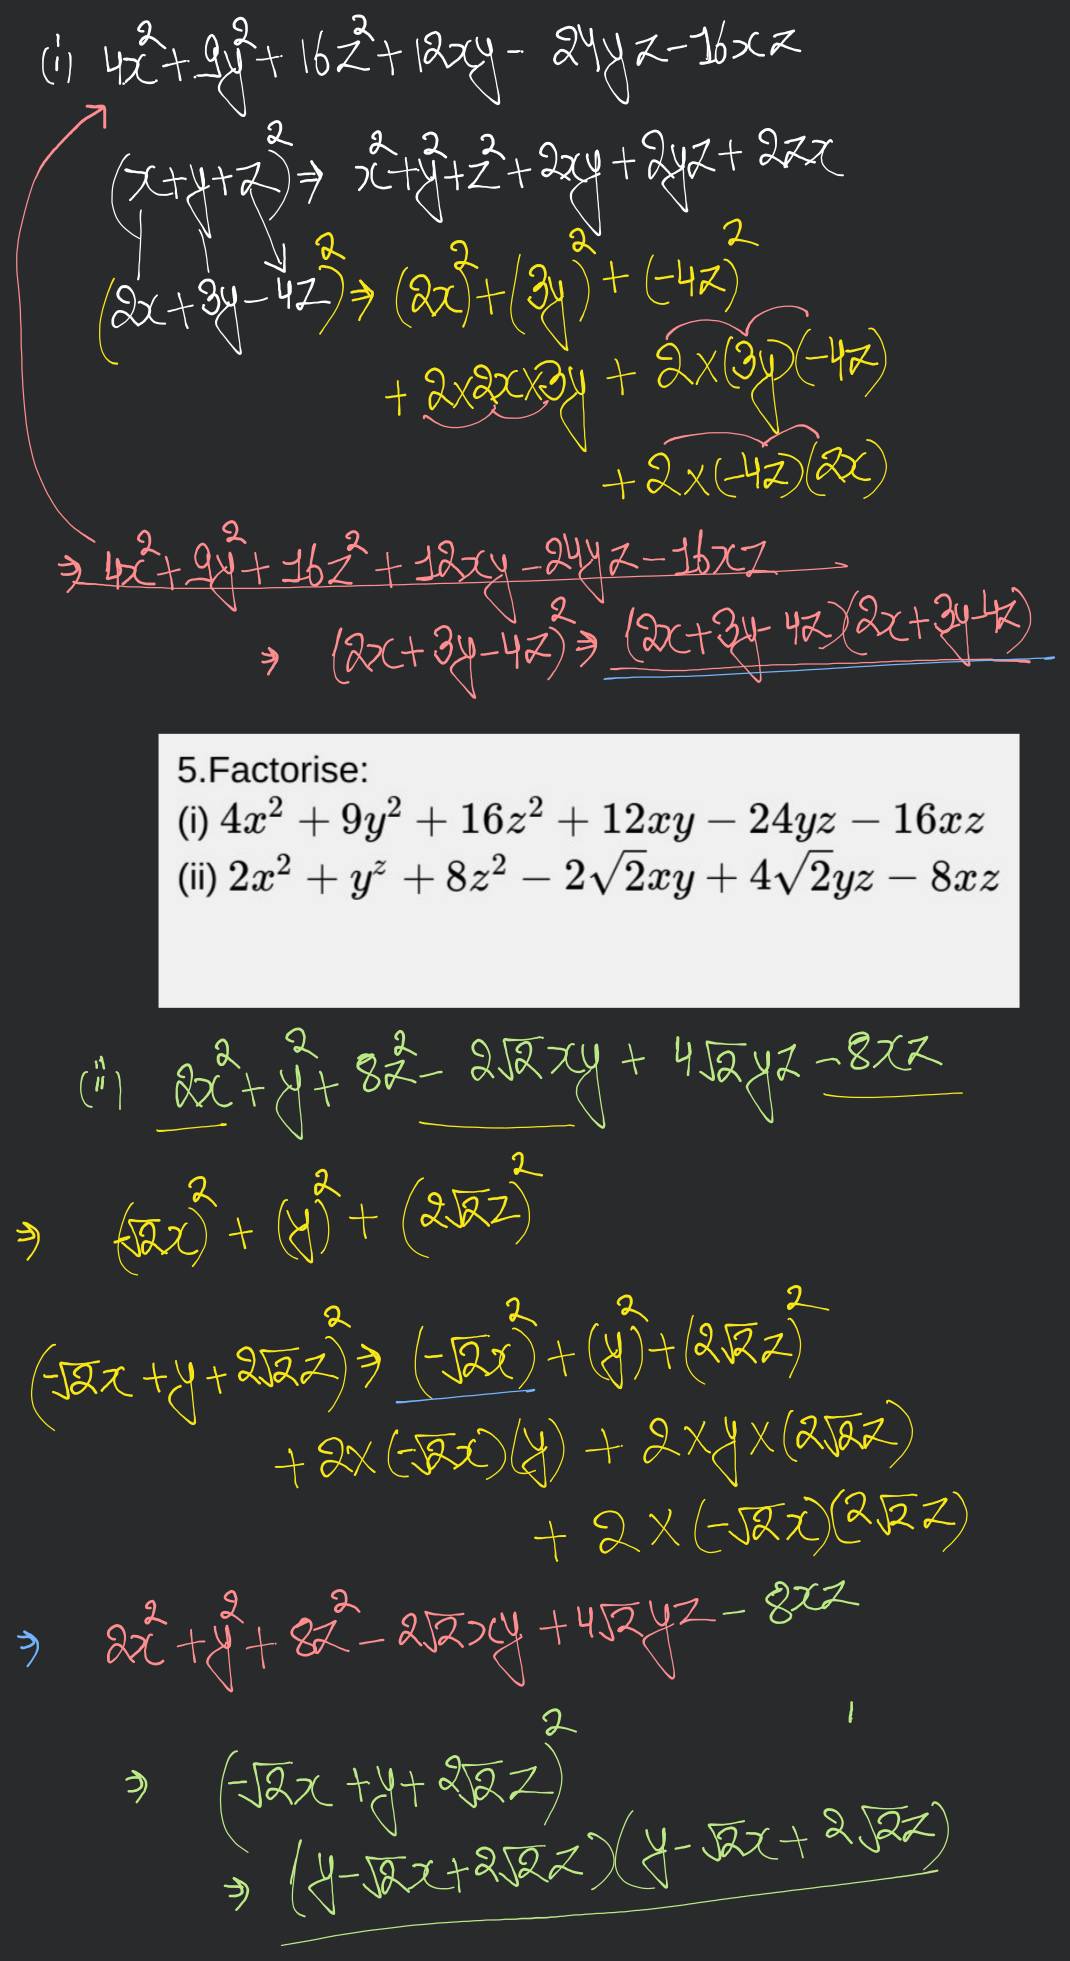 (i) 4x² + 9y² + 16z² + 12xy - 24yz - 16xz
(x+y+z)² ⇒ x²+y²+z²+2xy+2yz+2zx
(2x+3y-4z)² ⇒ (2x)²+(3y)²+(-4z)²
+ 2×2x×3y + 2×(3y)(-4z)
+ 2×(-4z)(2x)
⇒ 4x²+9y²+16z²+12xy-24yz-16xz
⇒ (2x+3y-4z)² ⇒ (2x+3y-4z)(2x+3y-4z)
5.Factorise:
(i) 4x² + 9y² + 16z² + 12xy − 24yz − 16xz
(ii) 2x² + yᶻ + 8z² − 2√2xy + 4√2yz − 8xz
(ii) 2x²+y²+8z²-2√2xy+4√2yz-8xz
⇒ (-√2x)²+(y)²+(2√2z)²
(-√2x+y+2√2z)² ⇒ (-√2x)²+(y)²+(2√2z)²
+ 2×(-√2x)(y) + 2×y×(2√2z)
+ 2×(-√2x)(2√2z)
⇒ 2x²+y²+8z²-2√2xy+4√2yz-8xz
⇒ (-√2x+y+2√2z)²
⇒ (y-√2x+2√2z)(y-√2x+2√2z)